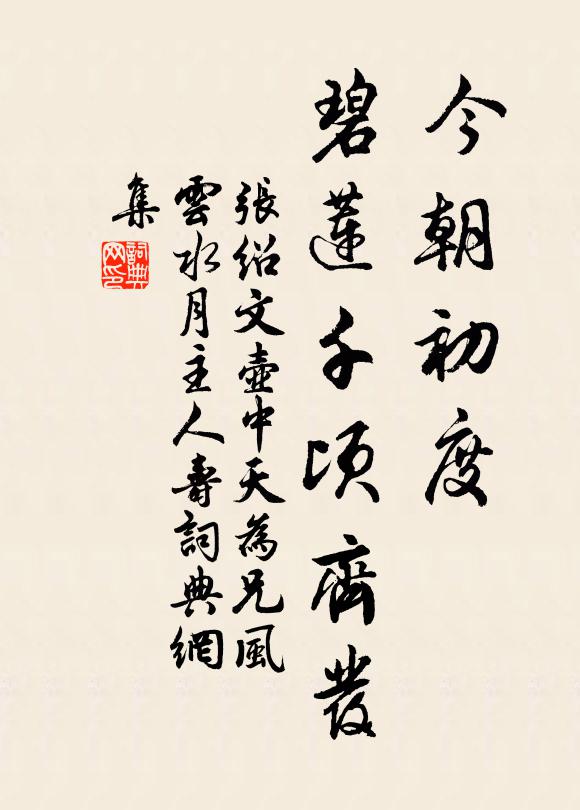 今朝初度
碧蓮千頃齊發
張紹文壺中天為兄風
雲水月主人壽詞典網
集
詞典
网印